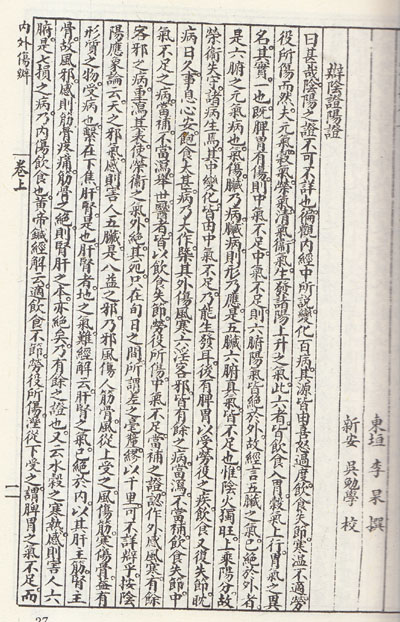 東垣 李杲 撰
新安 吳勉學 校
辯陰證陽證
曰甚哉陰陽之證不可不詳也徧觀內經中所說變化百病其源皆由喜怒過度飲食失節寒溫不適勞
役所傷而然夫元氣穀氣榮氣清氣衞氣生發諸陽上升之氣此六者皆飲食入胃穀氣上行胃氣之異
名其實一也既脾胃有傷則中氣不足中氣不足則六腑陽氣皆絕於外故經言五臟之氣已絕於外者
是六腑之元氣病也氣傷臟乃病臟病則形乃應是五臟六腑真氣皆不足也惟陰火獨旺上乘陽分故
榮衞失守諸病生焉其中變化皆由中氣不足乃能生發耳後有脾胃以受勞役之疾飲食又復失節眈
病日久事息心安飽食太甚病乃大作槩其外傷風寒六淫客邪皆有餘之病當瀉不當補飲食失節中
氣不足之病當補不當瀉舉世醫者皆以飲食失節勞役所傷中氣不足當補之證認作外感風寒有餘
客邪之病重瀉其表使榮衞之氣外絕其死只在旬日之間所謂差之毫釐繆以千里可不詳辯乎按陰
陽應象論云天之邪氣感則害人五臟是八益之邪乃邪風傷人筋骨風從上受之風傷筋寒傷骨蓋有
形質之物受病也繫在下焦肝腎是也肝腎者地之氣難經解云肝腎之氣已絕於內以其肝主筋腎主
骨故風邪感則筋骨疼痛筋骨之絕則腎肝之本亦絕矣乃有餘之證也又云水穀之寒熱感則害人六
腑是七損之病乃內傷飲食也黃帝鍼經解云適飲食不節勞役所傷溼從下受之謂脾胃之氣不足而
內外傷辯 卷上 一
27